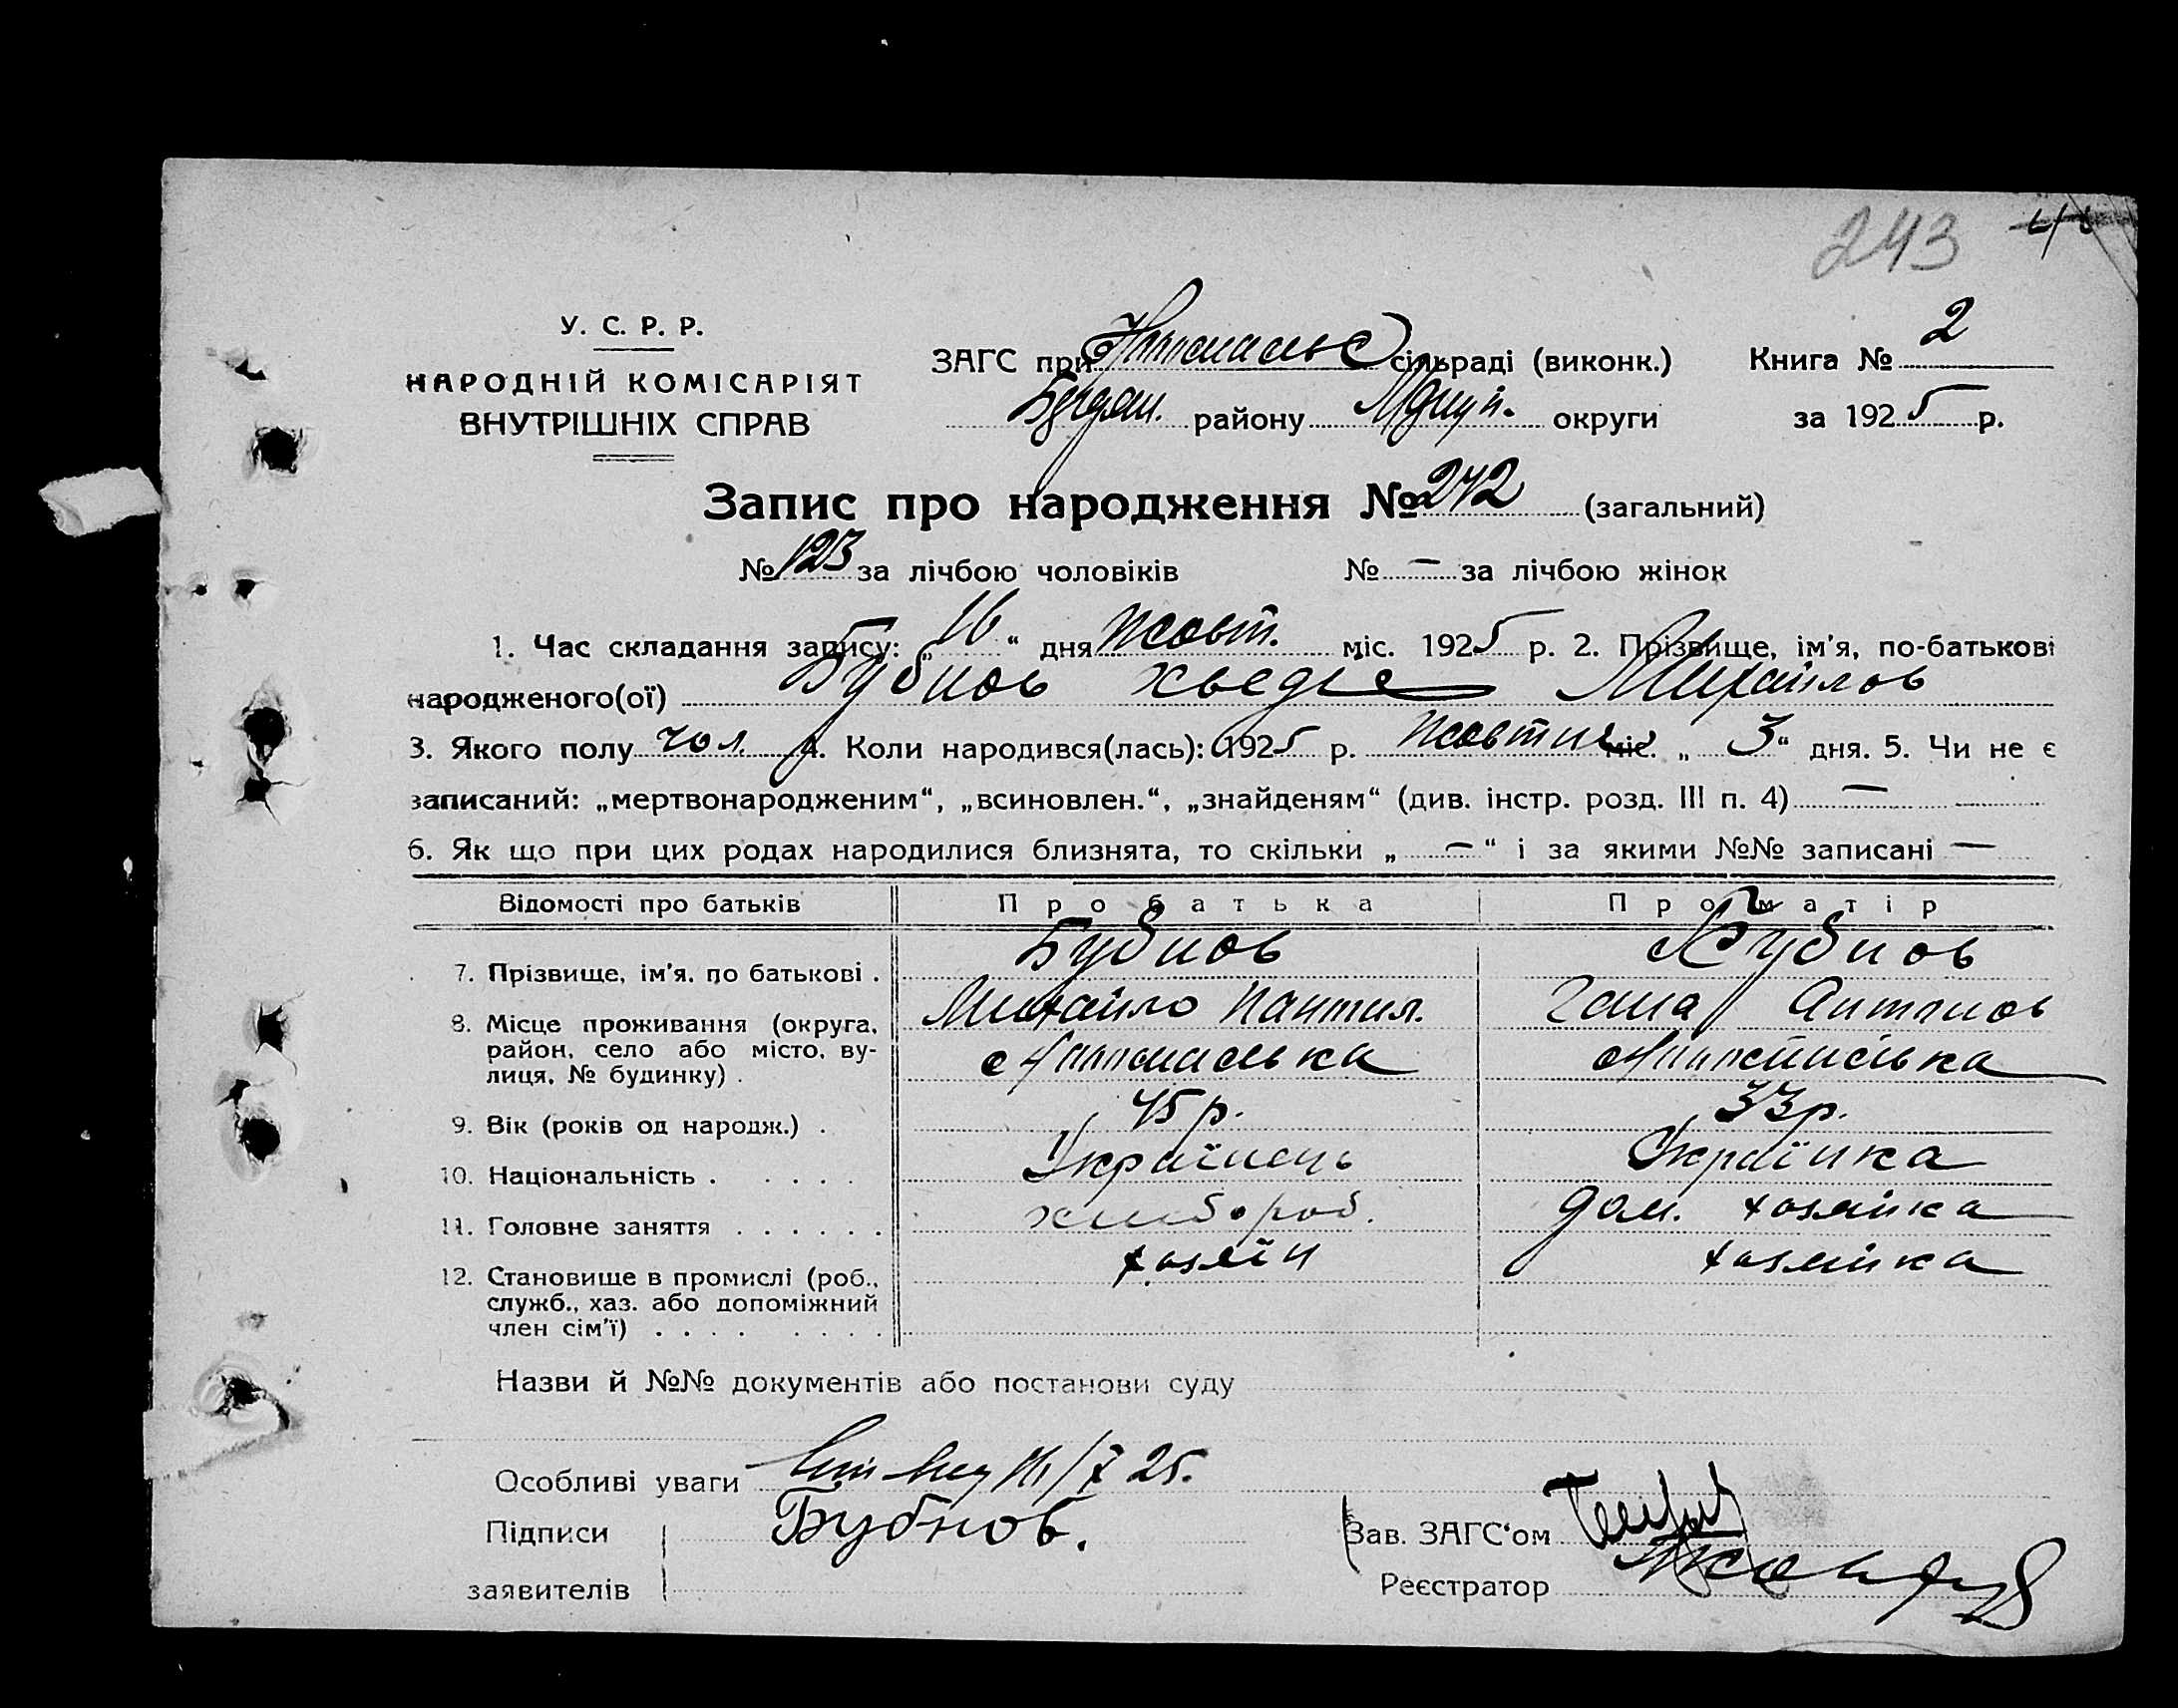 243
У. С. Р. Р.
НАРОДНІЙ КОМІСАРІЯТ
ВНУТРІШНІХ СПРАВ
ЗАГС при сільраді (виконк.) Книга № 2
району округи за 1925 р.
Запис про народження № 242 (загальний)
№ 123 за лічбою чоловіків № — за лічбою жінок
1. Час складання запису: „16“ дня Жовт. міс. 1925 р. 2. Прізвище, ім'я, по-батькові
народженого(ої) Бубнов Хведір Михайлов
3. Якого полу чол. 4. Коли народився(лась): 1925 р. Жовтня міс. „3“ дня. 5. Чи не є
записаний: „мертвонародженим“, „всиновлен.“, „знайденям“ (див. інстр. розд. III п. 4) —
6. Як що при цих родах народилися близнята, то скільки „—“ і за якими №№ записані —
Відомості про батьків Про батька Про матір
7. Прізвище, ім'я, по батькові . Бубнов Бубнов
Михайло Пантил. Ганна Антонов
8. Місце проживання (округа,
район, село або місто, ву-
лиця, № будинку) .
9. Вік (років од народж.) . 45 р. 33 р.
10. Національність . . . . . Українець Українка
11. Головне заняття . . . . . . хлібороб. дом. хозяйка
12. Становище в промислі (роб., хозяїн хозяйка
служб., хаз. або допоміжний
член сім'ї) . . . . . . . .
Назви й №№ документів або постанови суду
Особливі уваги 25.
Підписи Бубнов. Зав. ЗАГС'ом
заявителів Реєстратор